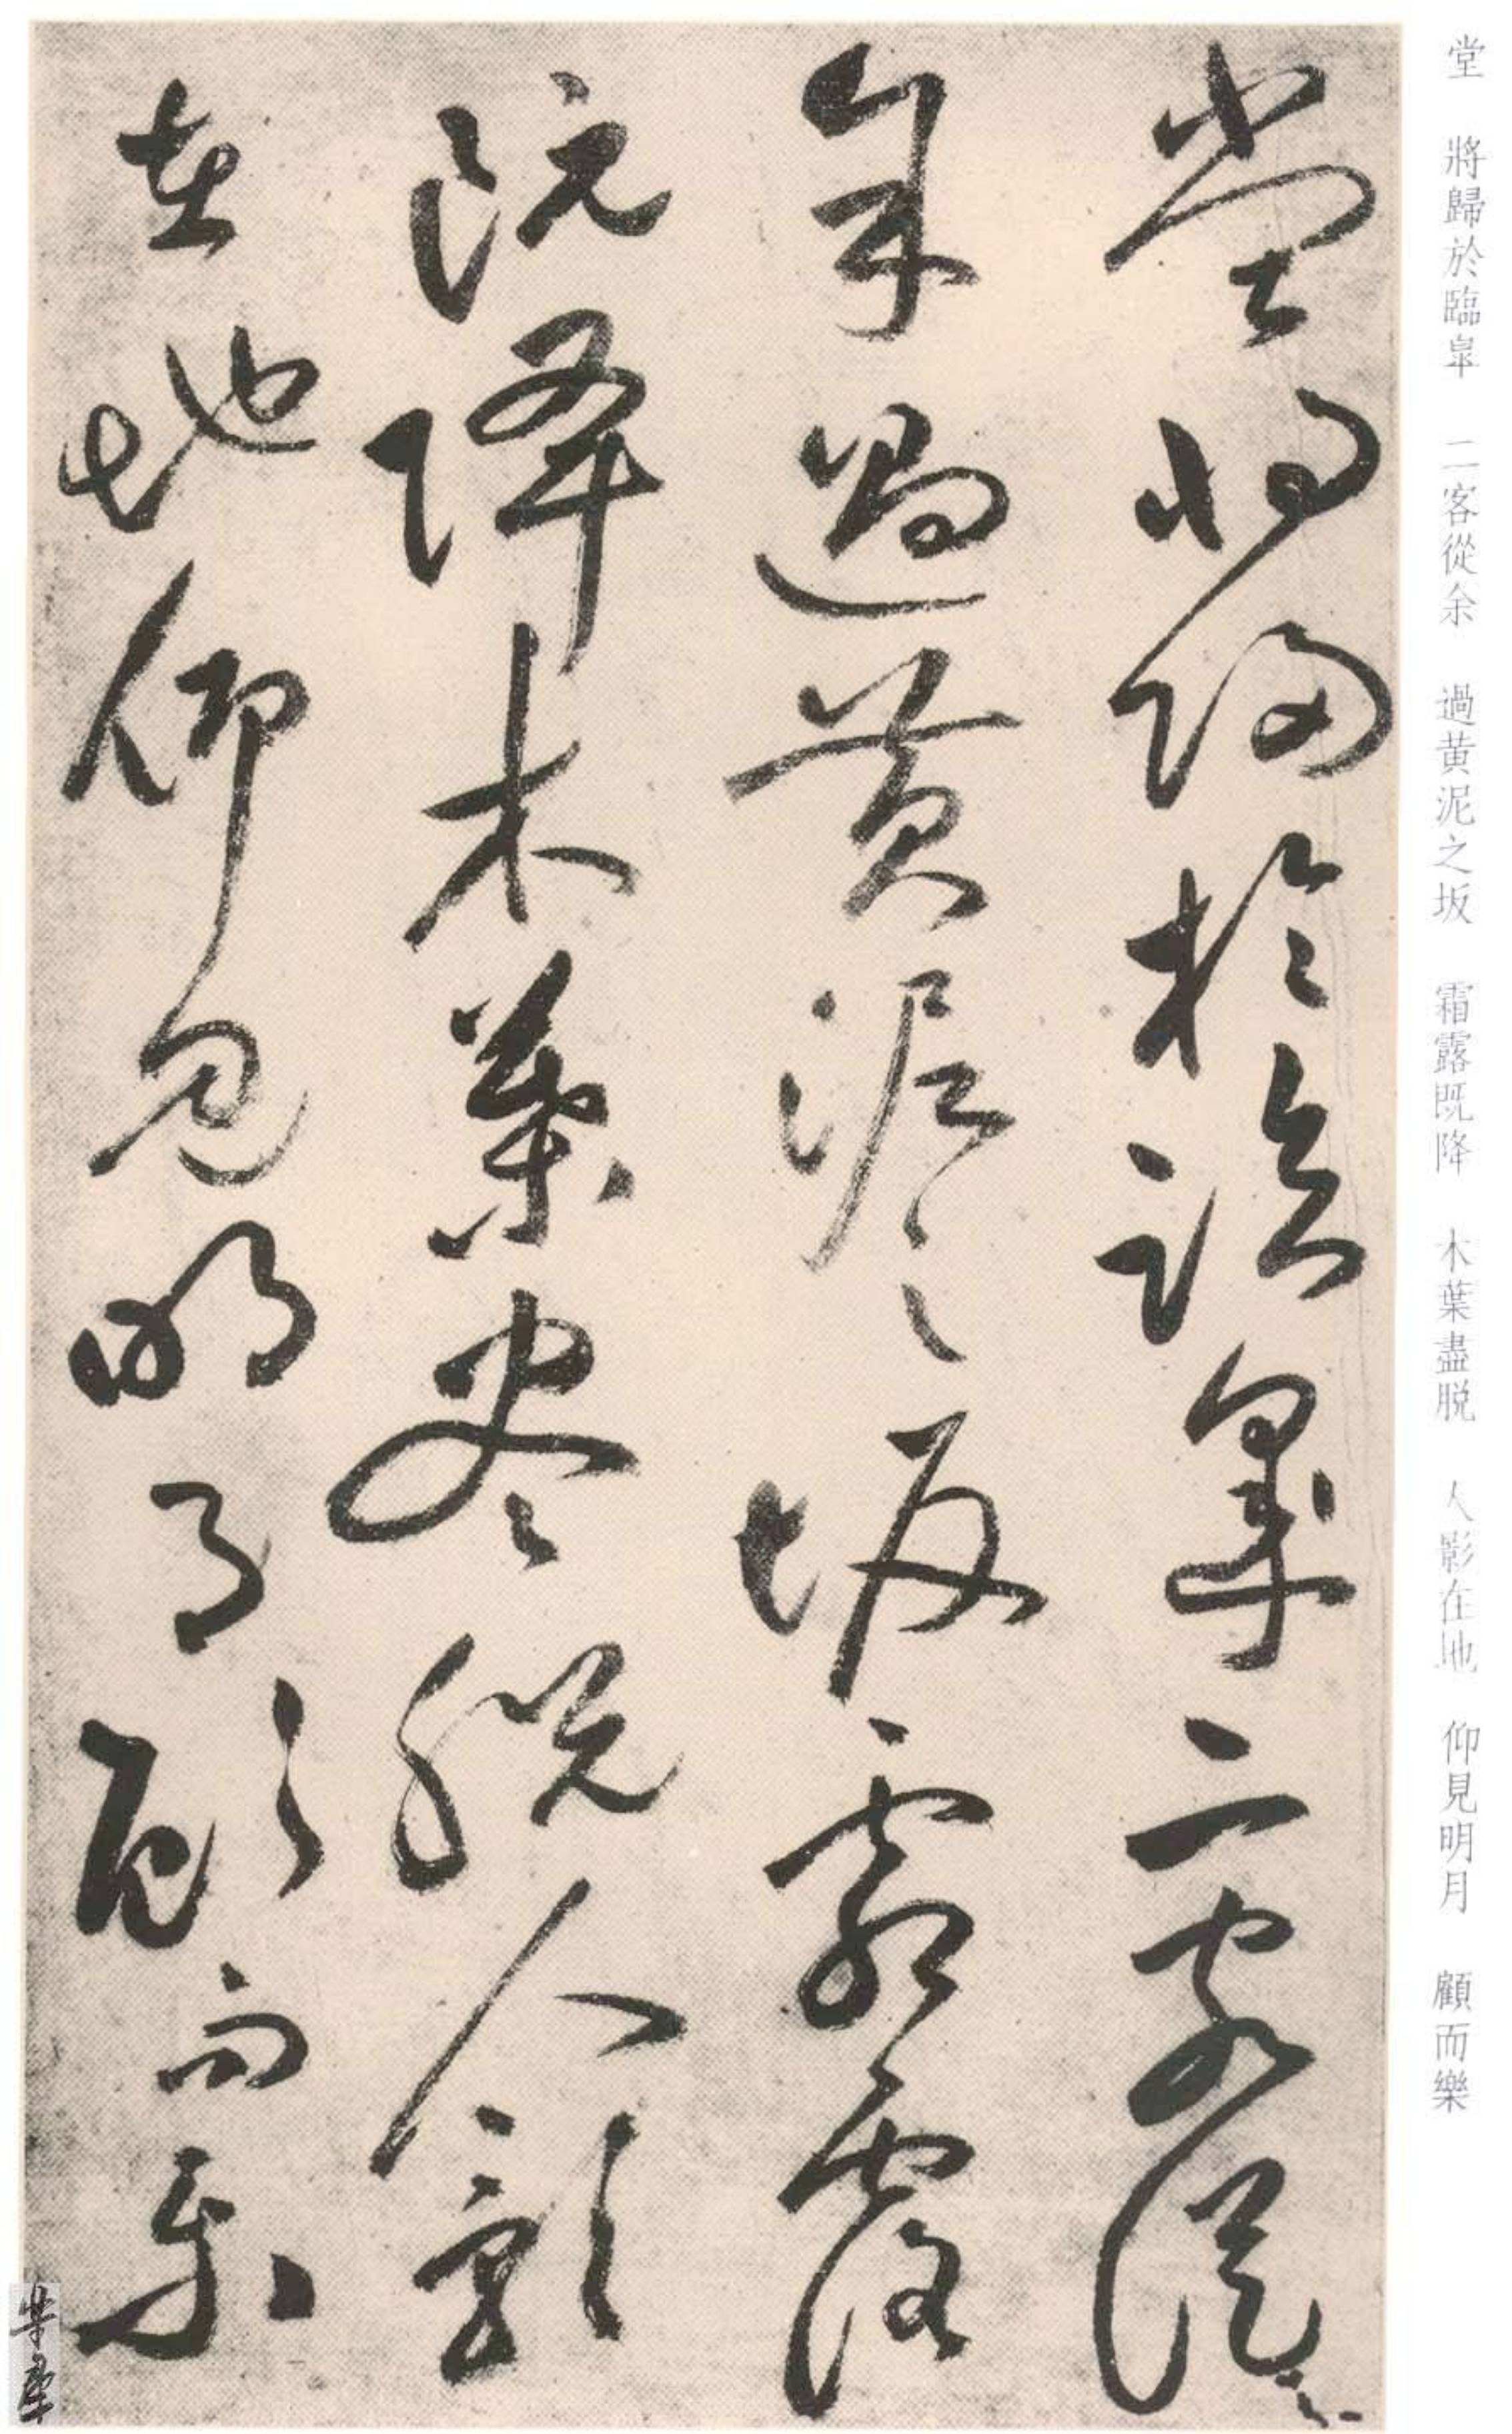 堂 將歸於臨皐 二客從余 過黄泥之坂 霜露既降 木葉盡脱 人影在地 仰見明月 顧而樂
堂將歸於臨皐二客從
余過黄泥之坂霜露
既降木葉盡脱人影
在地仰見明月顧而樂